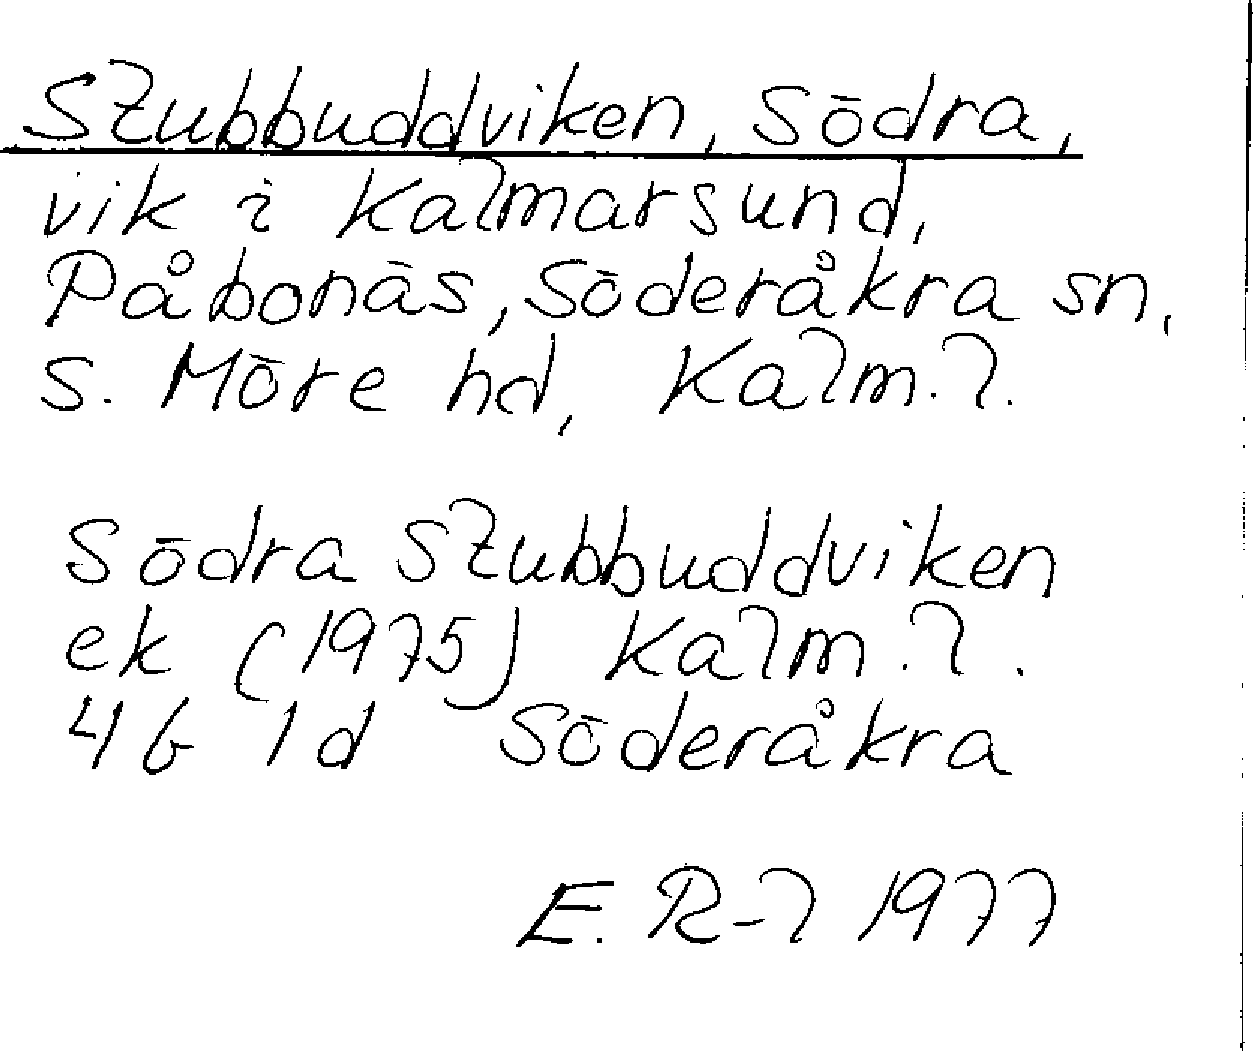 Slubbuddviken, Södra,
vik i Kalmarsund,
Påbonäs, Söderåkra sn,
S. Möre hd, Kalm.l.
Södra Slubbuddviken
ek (1975) Kalm.l.
4G 1d Söderåkra
E. R-l 1977